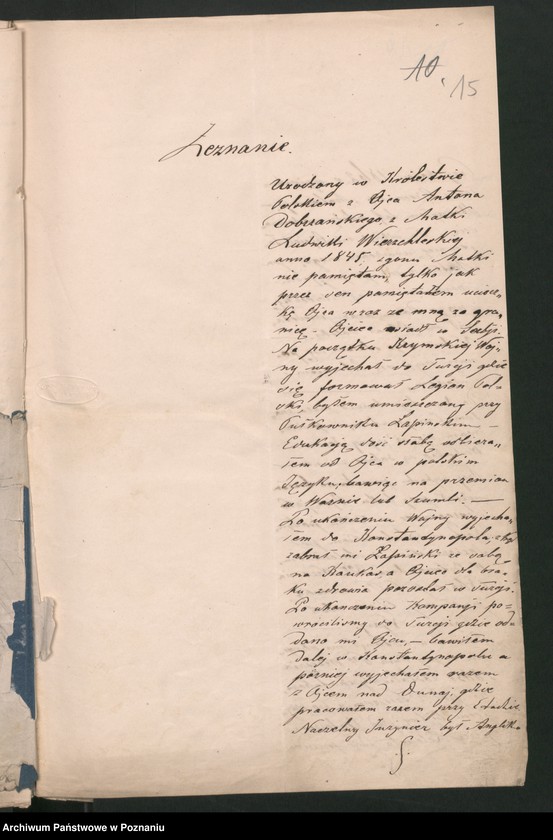 10.
15
Zeznanie.
Urodzony w Królestwie
Polskiem z Ojca Antona
Dobrzańskiego, z Matki
Ludwiki Wierzchleskiej
anno 1845, zgonu Matki
nie pamiętam, tylko jak
przez sen pamiętałem uciecz-
kę Ojca wraz ze mną za gra-
nicę. Ojciec osiadł w
Na początku Krzymskiej Woj-
ny wyjechał do Turcji gdzie
się formował Legion Pol-
ski, byłem umieszczony przy
Pułkowniku Łapińskim –
Edukacją dość słabą odbiera-
łem od Ojca w polskim
Języku, bawiąc na przemian
w Warnie lub Szumli. —
Po ukończeniu Wojny wyjecha-
łem do Konstantynopola,
zabrał mi Łapiński ze sobą
na Kaukaz, a Ojciec dla bra-
ku zdrowia pozostał w Turcji.
Po ukończeniu Kampanji po=
wróciliśmy do Turcji gdzie od-
dano mi Ojcu, – bawiłem
dalej w Konstantynopolu a
później wyjechałem razem
z Ojcem nad Dunaj, gdzie
pracowałem razem przy
Naczelny Inżynier był Anglik
Archiwum Państwowe w Poznaniu